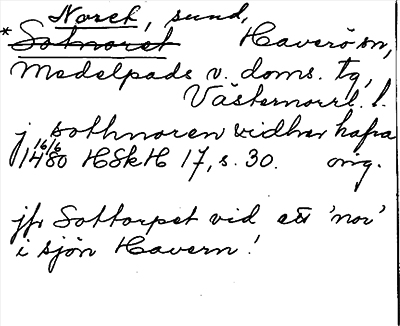 Noret, sund,
* Sotnoret Haverö sn,
Medelpads v. doms. tg,
Västernorrl. l.
j sothnoren vidher hafra
16/6 1480 HSkH 17, s. 30. orig.
jfr Sottorpet vid ett 'nor'
i sjön Havern!